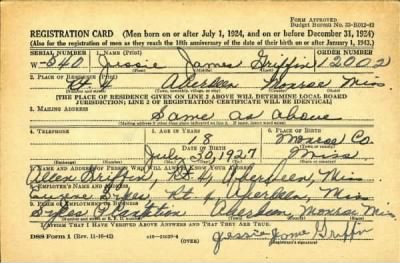 FORM APPROVED
Budget Bureau No. 33-R012-42
REGISTRATION CARD—(Men born on or after July 1, 1924, and on or before December 31, 1924)
(Also for the registration of men as they reach the 18th anniversary of the date of their birth on or after January 1, 1943.)
SERIAL NUMBER 1. NAME (Print) ORDER NUMBER
W 540 Jessie James Griffin 12002
2. PLACE OF RESIDENCE (Print)
Rt 4 Aberdeen Monroe Miss.
[THE PLACE OF RESIDENCE GIVEN ON LINE 2 ABOVE WILL DETERMINE LOCAL BOARD
JURISDICTION; LINE 2 OF REGISTRATION CERTIFICATE WILL BE IDENTICAL]
3. MAILING ADDRESS
Same as above
4. TELEPHONE 5. AGE IN YEARS 6. PLACE OF BIRTH
18 Monroe Co.
DATE OF BIRTH
July 1927 Miss
7. NAME AND ADDRESS OF PERSON WHO WILL ALWAYS KNOW YOUR ADDRESS
Allen Griffin, Rt 4, Aberdeen, Miss
8. EMPLOYER'S NAME AND ADDRESS
Eugene Sykes, Rt. 4 Aberdeen, Miss
9. PLACE OF EMPLOYMENT OR BUSINESS
Sykes Plantation Aberdeen Monroe Miss.
I AFFIRM THAT I HAVE VERIFIED ABOVE ANSWERS AND THAT THEY ARE TRUE.
DSS Form 1 (Rev. 11-16-42) (OVER) Jessie Jame Griffin
(Registrant's signature)